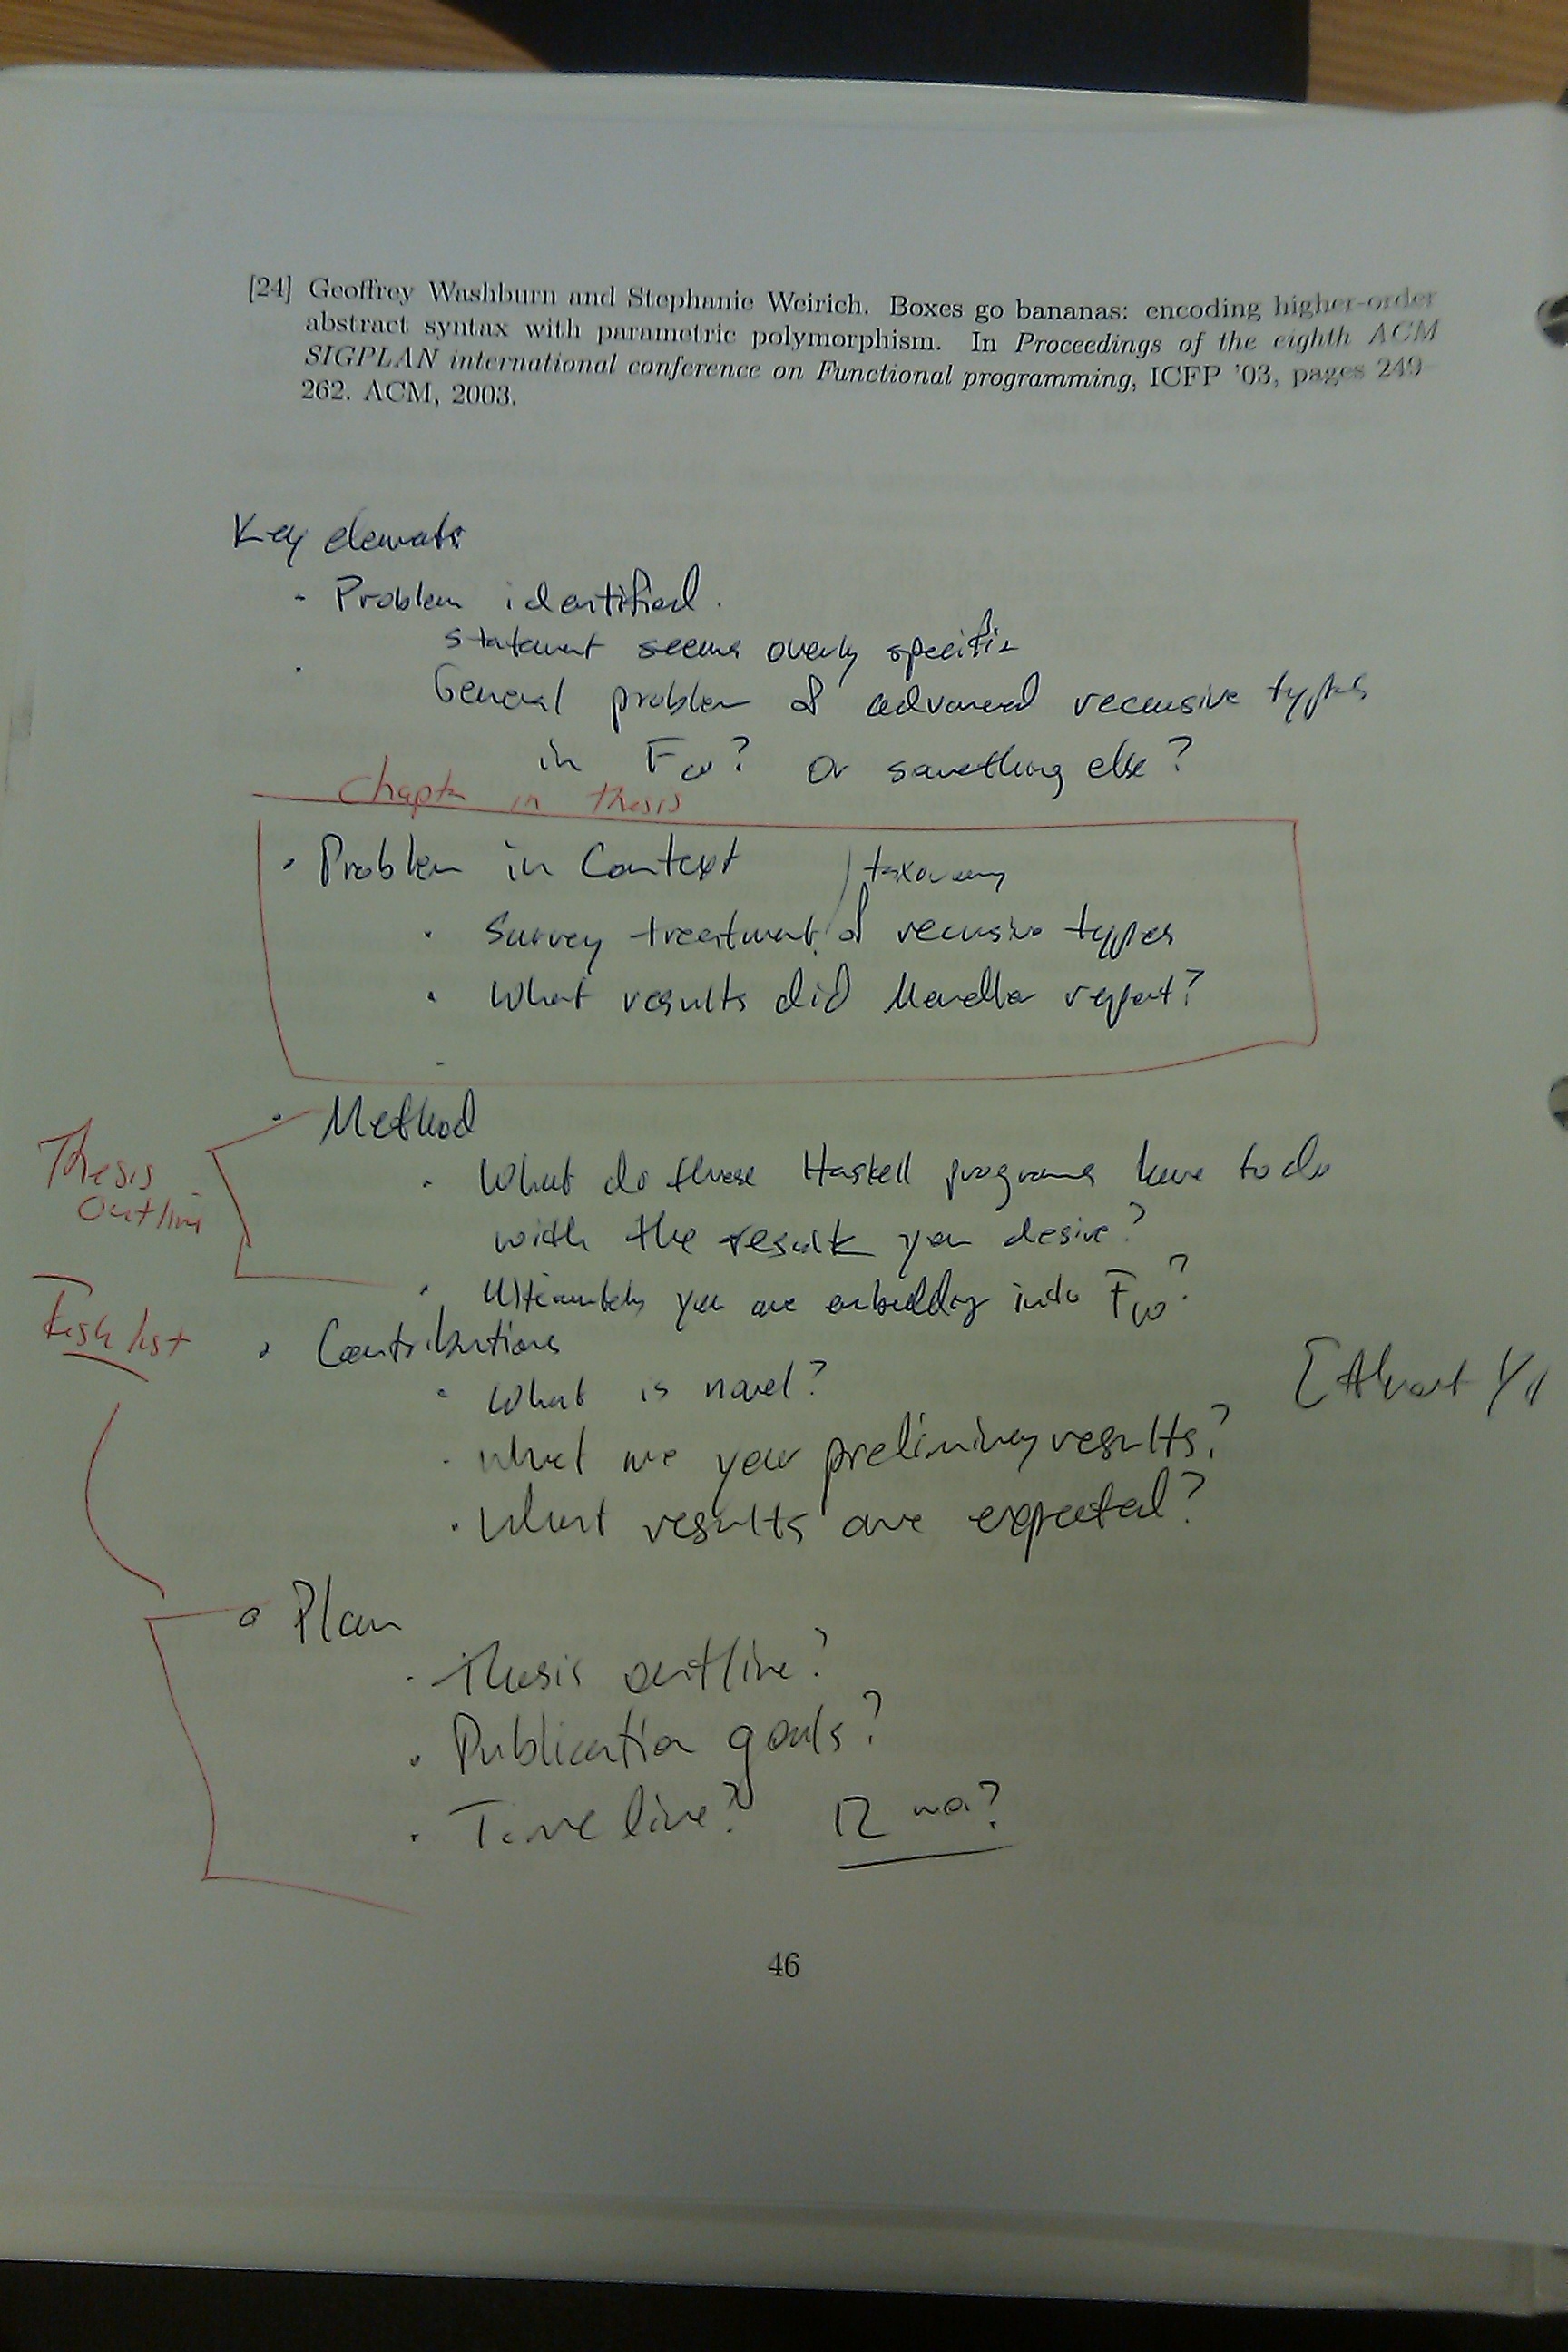 [24] Geoffrey Washburn and Stephanie Weirich. Boxes go bananas: encoding higher-order
abstract syntax with parametric polymorphism. In Proceedings of the eighth ACM
SIGPLAN international conference on Functional programming, ICFP '03, pages 249–
262. ACM, 2003.
Key elements
· Problem identified.
statement seems overly specific
General problem of advanced recursive types
in Fω? or something else?
Chapter in thesis
· Problem in Context
taxonomy
· Survey treatment of recursive types
· What results did Mendler report?
· Method
Thesis
Outline
· What do these Haskell programs have to do
with the result you desire?
· Ultimately you are embedding into Fω?
Task list
· Contributions
· What is novel?
[Abstract
· What are your preliminary results?
· What results are expected?
· Plan
· Thesis outline?
· Publication goals?
· Time line? 12 mo?
46